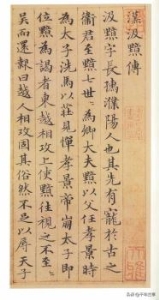 漢汲黯傳
汲黯字長孺濮陽人也其先有寵於古之
衛君至黯七世〻為卿大夫黯以父任孝景時
為太子洗馬以莊見憚孝景帝崩太子即
位黯為謁者東越相攻上使黯往視之不至
吳而還報曰越人相攻固其俗然不足以辱天子